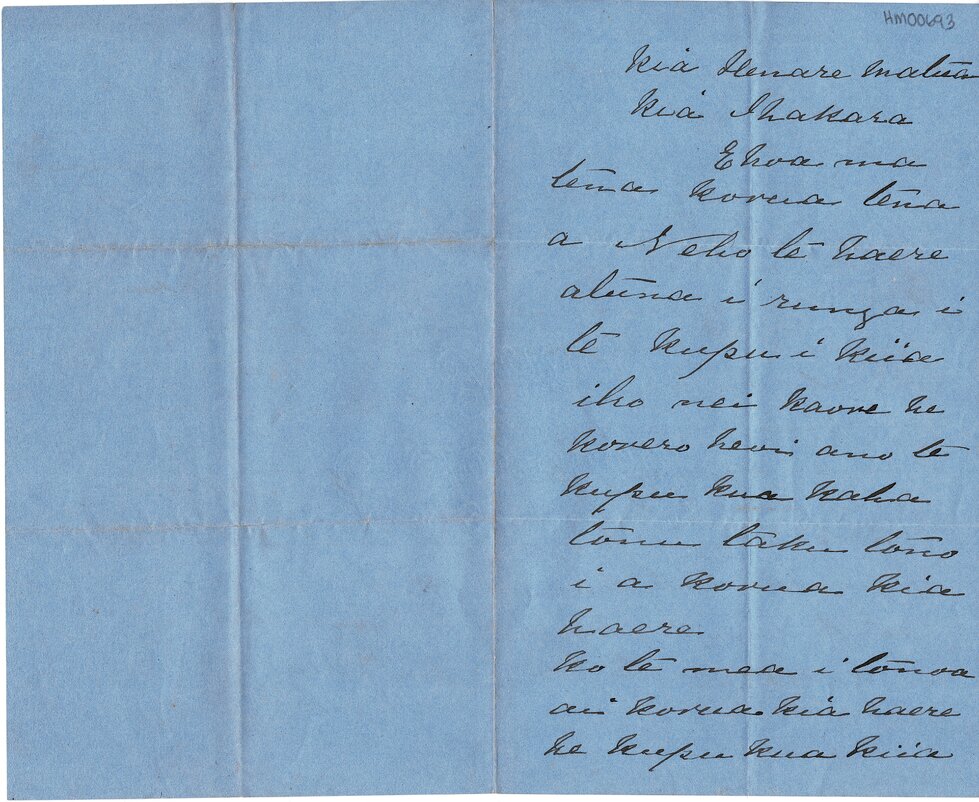 HM00693
Kia Henare Matua
Kia Ihakara
E hoa ma
tena Korua tena
a Neho te haere
atuna i runga i
te kupu i kiia
iho nei kaore he
korero hevi ano te
kupu kua kaha
tonu taku tono
i a korua kia
haere
ko te mea i tonoa
ai korua kia haere
he kupu kua kiia